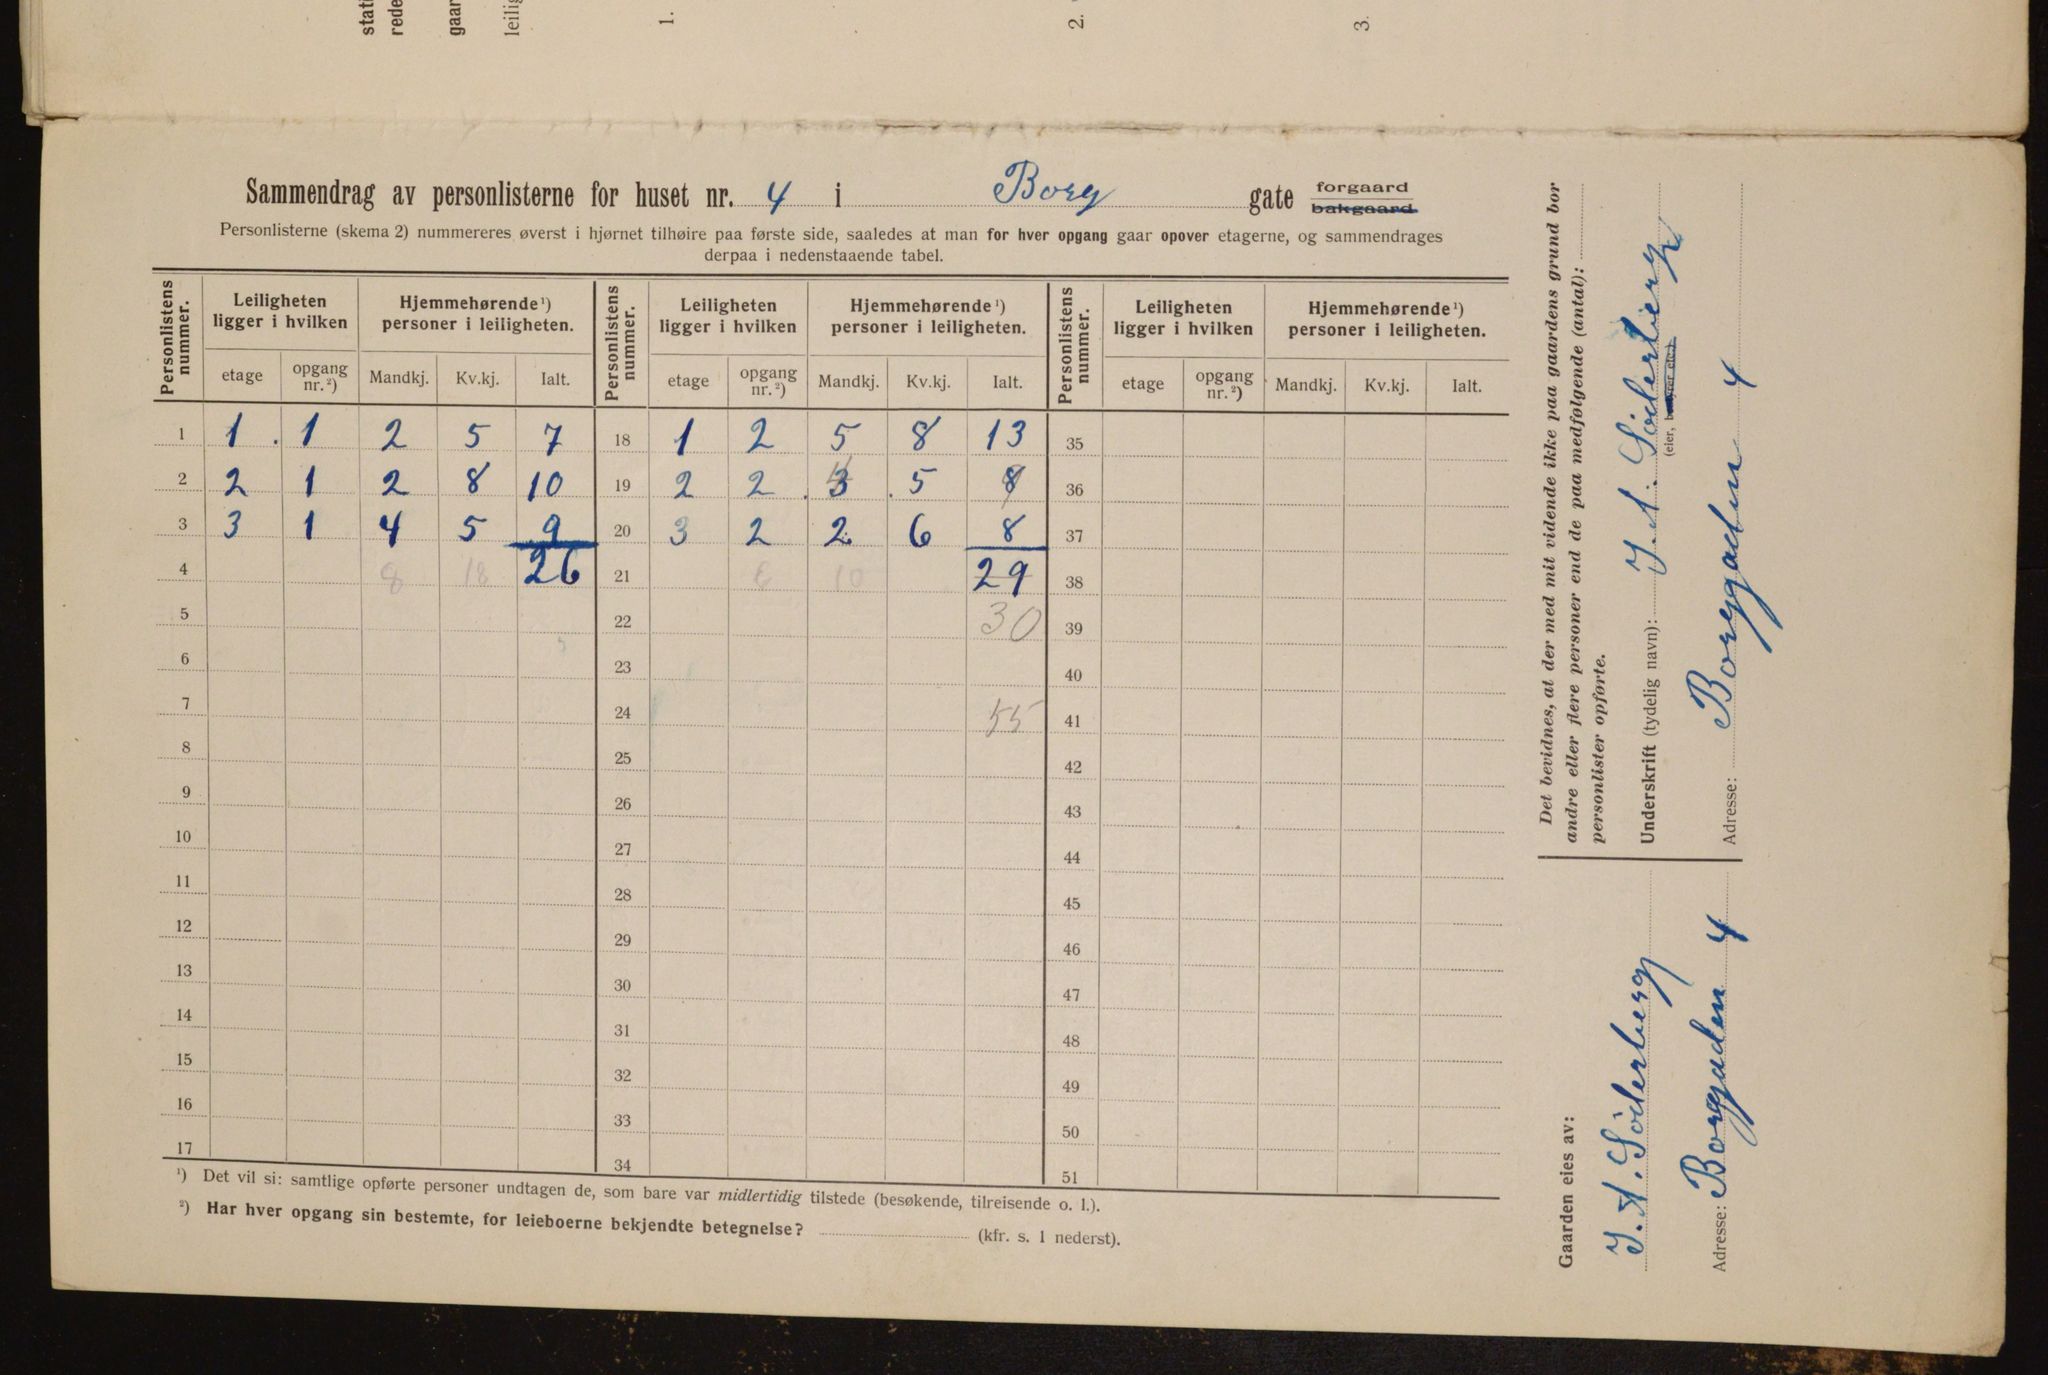 stati
rede
gaar
leilig
1.
2.
3.
Sammendrag av personlisterne for huset nr. 4 i Borg gate forgaard
bakgaard
Personlisterne (skema 2) nummereres øverst i hjørnet tilhøire paa første side, saaledes at man for hver opgang gaar opover etagerne, og sammendrages
derpaa i nedenstaaende tabel.
Personlistens nummer. Leiligheten ligger i hvilken Hjemmehørende ¹) personer i leiligheten. Personlistens nummer. Leiligheten ligger i hvilken Hjemmehørende ¹) personer i leiligheten. Personlistens nummer. Leiligheten ligger i hvilken Hjemmehørende ¹) personer i leiligheten.
etage opgang nr. ²) Mandkj. Kv.kj. Ialt. etage opgang nr. ²) Mandkj. Kv.kj. Ialt. etage opgang nr. ²) Mandkj. Kv.kj. Ialt.
1 1 . 1 2 5 7 18 1 2 5 8 13 35
2 2 1 2 8 10 19 2 2 . 3 . 5 8 36
3 3 1 4 5 9 20 3 2 2 6 8 37
4 8 18 26 21 10 29 38
5 22 30 39
6 23 40
7 24 55 41
8 25 42
9 26 43
10 27 44
11 28 45
12 29 46
13 30 47
14 31 48
15 32 49
16 33 50
17 34 51
¹) Det vil si: samtlige opførte personer undtagen de, som bare var midlertidig tilstede (besøkende, tilreisende o. l.).
²) Har hver opgang sin bestemte, for leieboerne bekjendte betegnelse? (kfr. s. 1 nederst).
Det bevidnes, at der med mit vidende ikke paa gaardens grund bor
andre eller flere personer end de paa medfølgende (antal):
personlister opførte.
Underskrift (tydelig navn): J. A. Söderberg
(eier, bestyrer etc.)
Adresse: Borggaden 4
Gaarden eies av:
J. A. Söderberg
Adresse: Borggaden 4